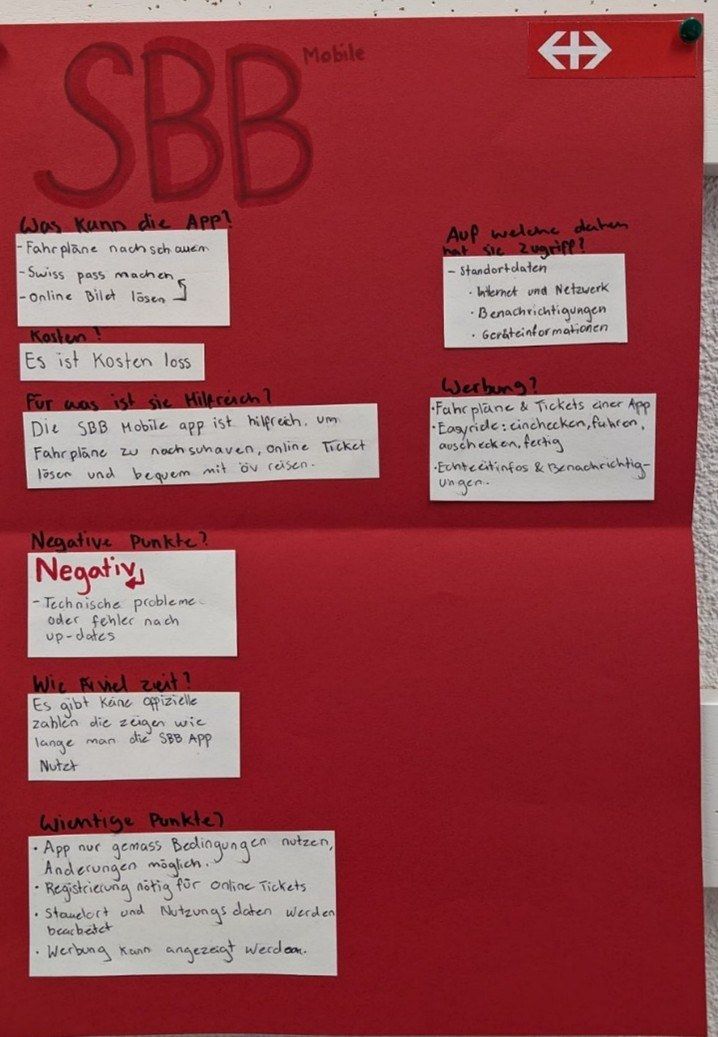 SBB
Mobile
Was kann die App?
- Fahrpläne nachschauen
- Swiss pass machen
- Online Bilet lösen
Kosten?
Es ist Kosten loss
Für was ist sie Hilfreich?
Die SBB Mobile app ist hilfreich, um
Fahrpläne zu nachsuhaven, online Ticket
lösen und bequem mit öv reisen.
Negative Punkte?
Negativ
- Technische probleme
oder fehler nach
up-dates
Wie viel zieit?
Es gibt keine offizielle
zahlen die zeigen wie
lange man die SBB App
Nutzt
Wichtige Punkte?
• App nur gemass Bedingungen nutzen,
Änderungen möglich.
• Registrierung nötig für online Tickets
• Standort und Nutzungs daten werden
bearbeitet
• Werbung kann angezeigt werden.
Auf welche daten
hat sie Zugriff?
- Standortdaten
• Internet und Netzwerk
• Benachrichtigungen
• Geräteinformationen
Werbung?
• Fahrpläne & Tickets einer App
• Easyride: einchecken, fahren,
auschecken, fertig
• Echtzeitinfos & Benachrichtig-
ungen.